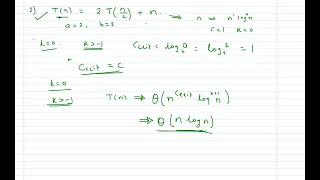 2) ✓ T(n) = 2 T(n/2) + n. ⇒ n → n^1 log^0 n
a=2, b=2 c=1 k=0
k=0. k>-1 C_crit = log_b a = log_2 2 = 1
C_crit = c
k=0
k>-1 T(n) ⇒ θ(n^C_crit log^k+1 n)
⇒ θ(n log n)